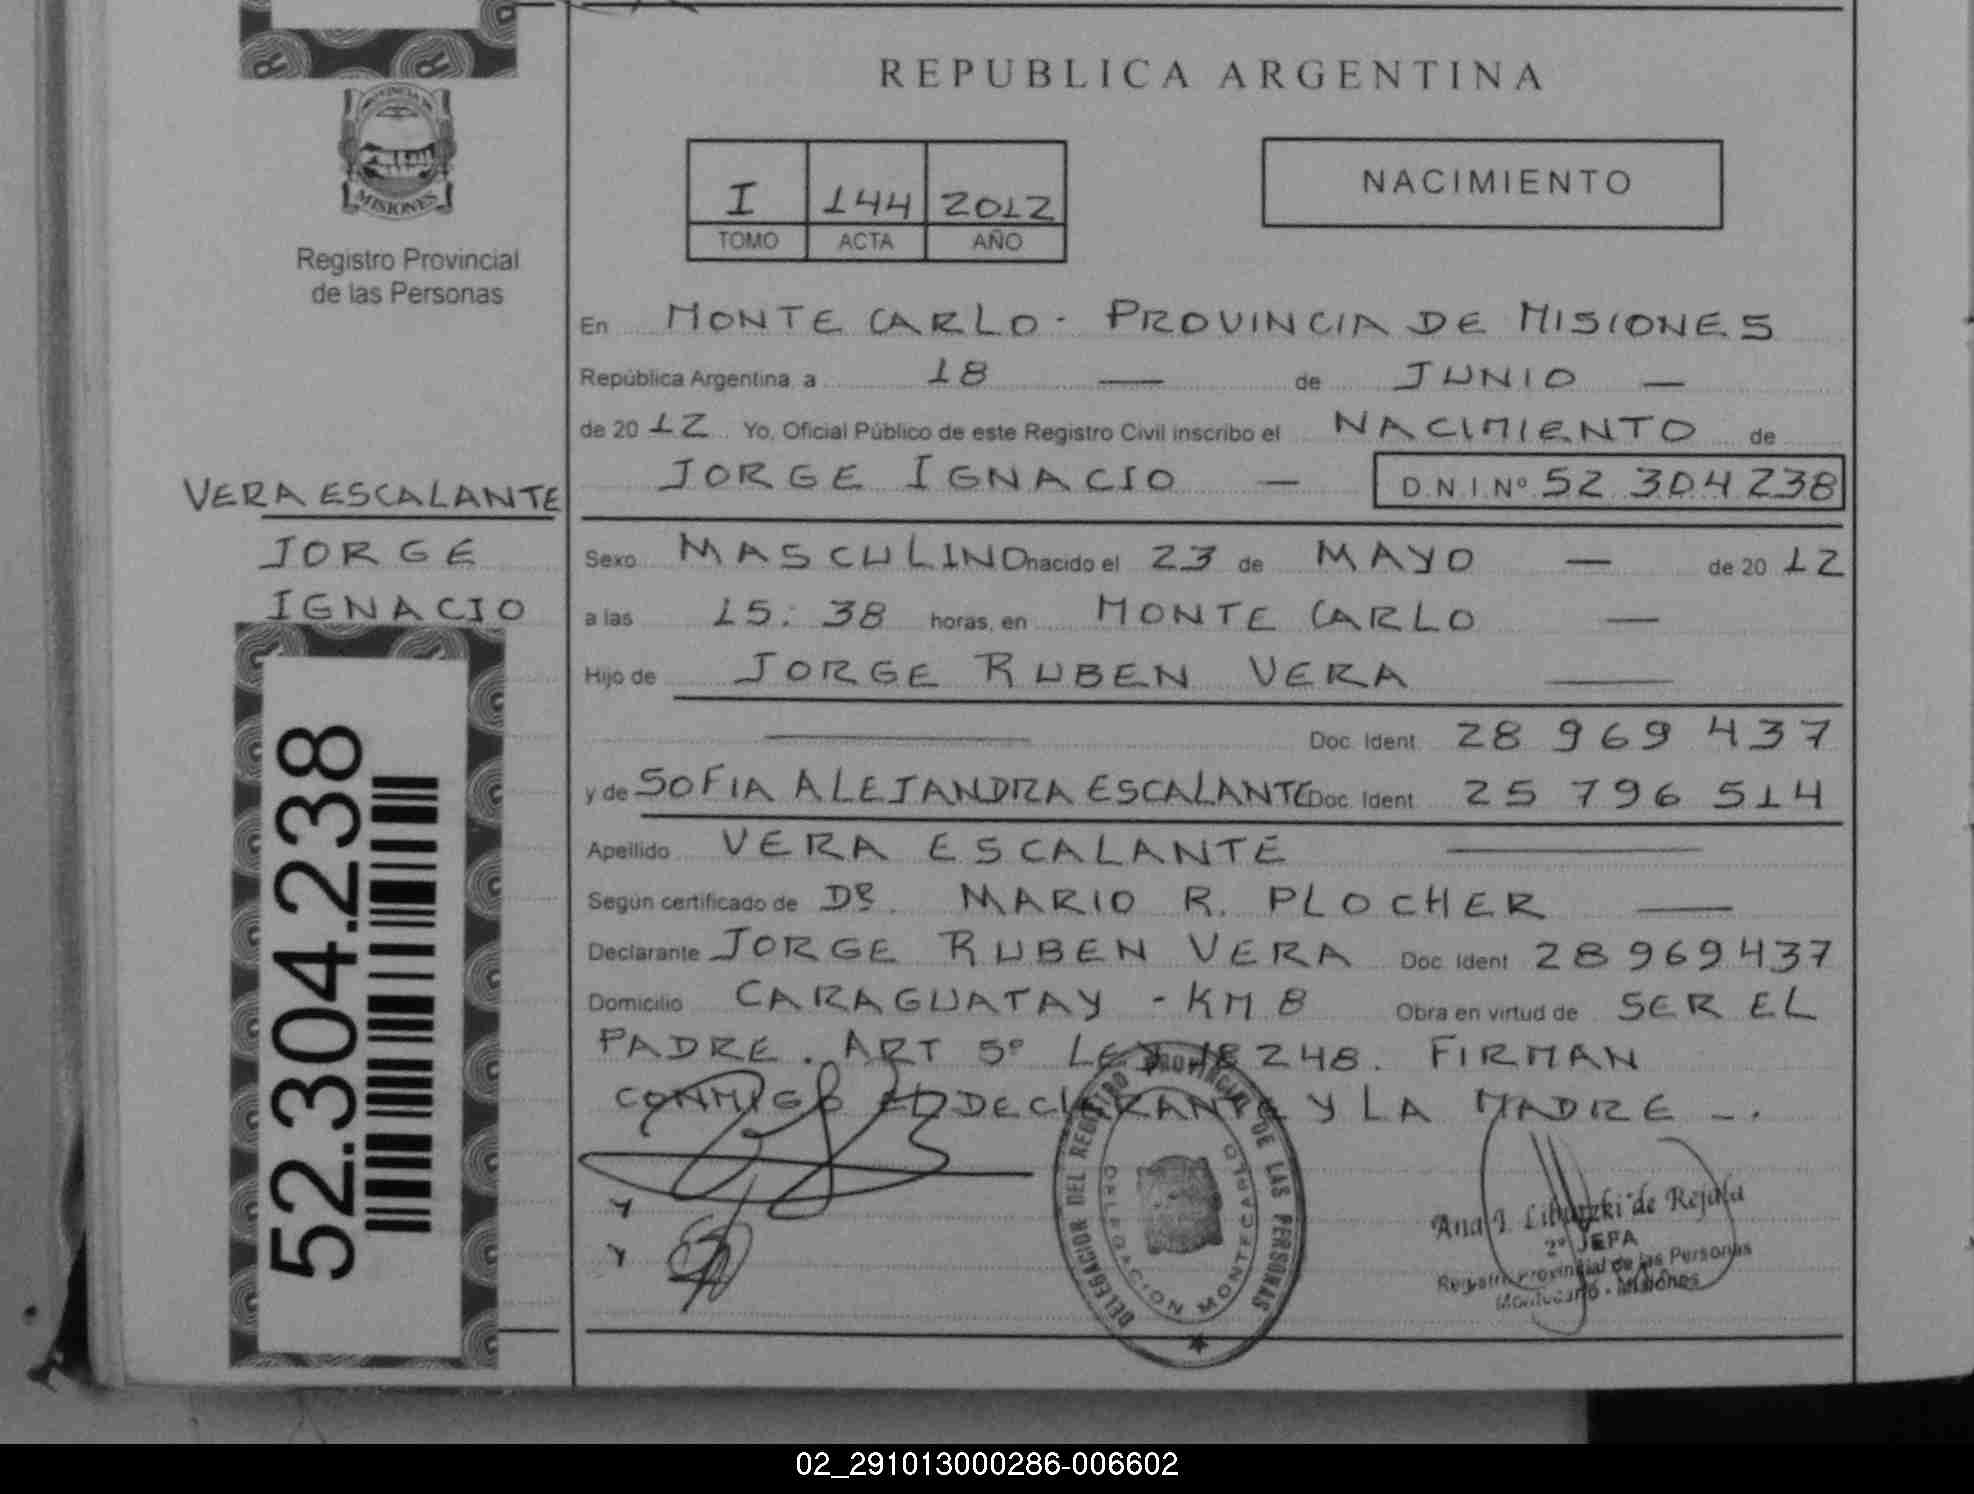 REPUBLICA ARGENTINA
PROVINCIA DE
MISIONES
Registro Provincial
de las Personas
I 144 2012
TOMO ACTA AÑO
NACIMIENTO
En MONTE CARLO - PROVINCIA DE MISIONES
República Argentina, a 18 — de JUNIO —
de 2012 Yo, Oficial Público de este Registro Civil inscribo el NACIMIENTO de
JORGE IGNACIO — D.N.I.Nº 52 304 238
VERA ESCALANTE
JORGE
IGNACIO
Sexo MASCULINO nacido el 23 de MAYO — de 2012
a las 15:38 horas, en MONTE CARLO —
Hijo de JORGE RUBEN VERA —
— Doc. Ident. 28 969 437
y de SOFIA ALEJANDRA ESCALANTE Doc. Ident. 25 796 514
Apellido VERA ESCALANTE —
Según certificado de DR. MARIO R. PLOCHER —
Declarante JORGE RUBEN VERA Doc. Ident. 28 969 437
Domicilio CARAGUATAY - KM 8 Obra en virtud de SER EL
PADRE. ART 5º LEY 18248. FIRMAN
CONMIGO EL DECLARANTE Y LA MADRE -.
52.304.238
Y
Y
DELEGACION DEL REGISTRO PROVINCIAL DE LAS PERSONAS
DELEGACION MONTECARLO
Ana J. de Rejala
2º JEFA
Registro Provincial de las Personas
Montecarlo - Misiones
02_291013000286-006602